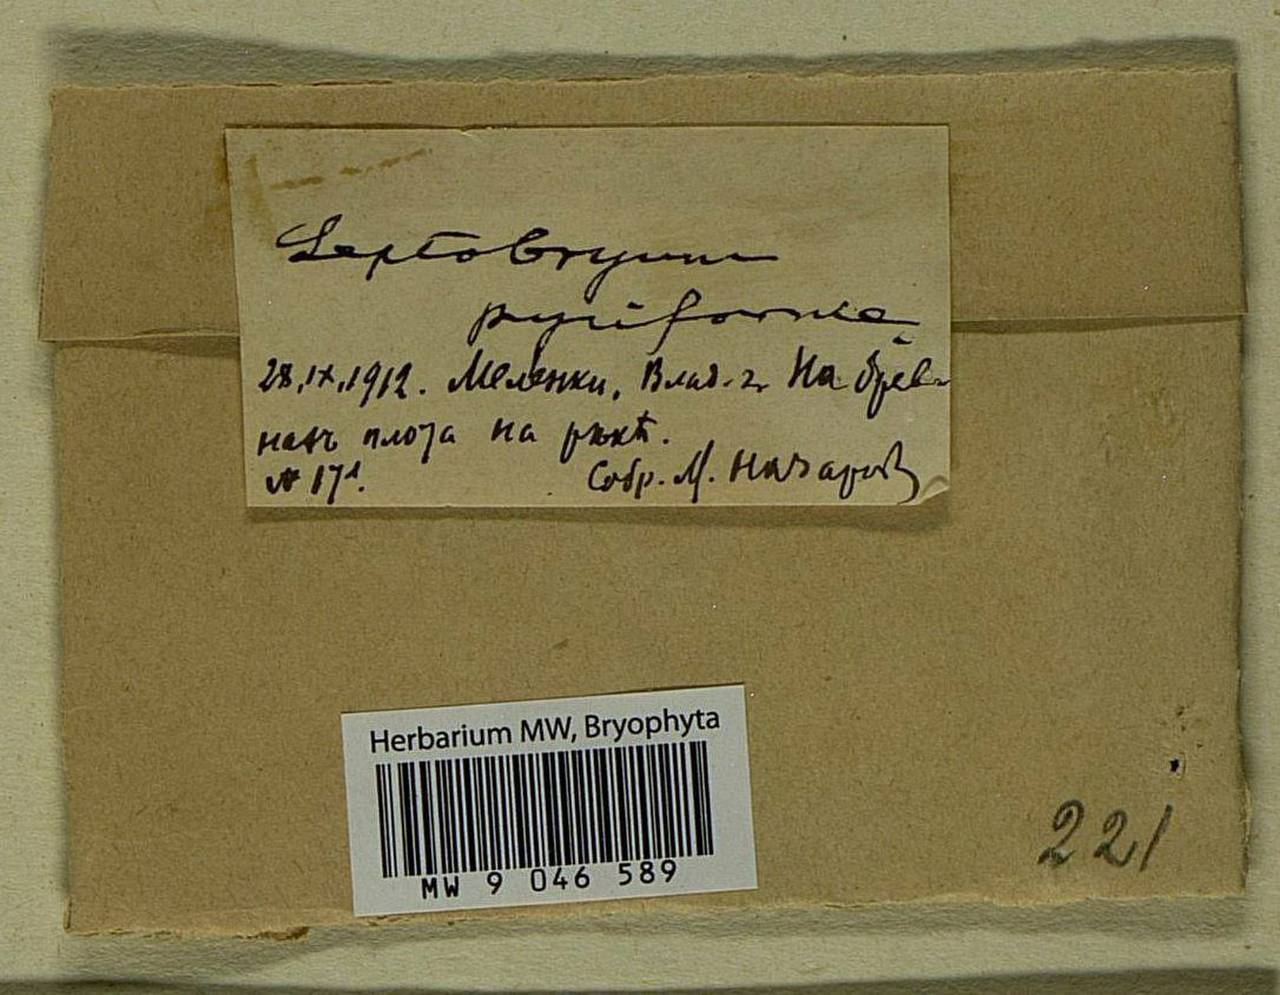 Leptobryum
pyriforme
28.IX.1912. Меленки, Влад. г. На брев-
нахъ плота на рѣкѣ.
№ 171. Собр. М. Назаров
Herbarium MW, Bryophyta
MW 9 046 589
221